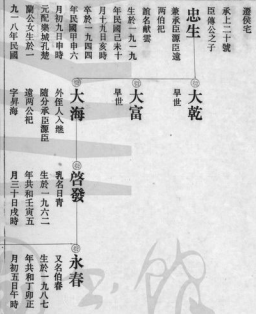 遷侯宅
承上二十號
臣傳公之子
忠生
兼承臣源臣遠
兩伯祀
諡名獻雲
生於一九一九
年民國己未十
月十九日亥時
卒於一九四四
年民國甲申六
月初九日申時
元配樂城孔楚
蘭公女生於一
九一八年民國
大乾
早世
大富
早世
大海
外侄人入继
隨分承臣源臣
遠两公祀
字昇海
啓發
乳名日青
生於一九六二
年共和壬寅五
月三十日戌時
永春
又名伯春
生於一九八七
年共和丁卯正
月初五日午時